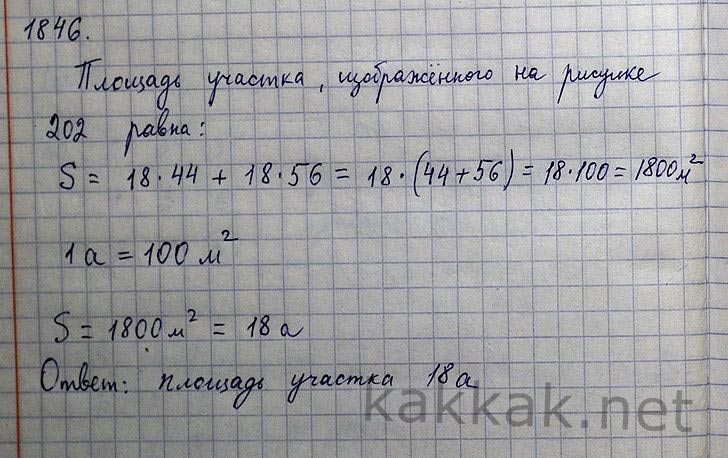 1846.
Площадь участка, изображённого на рисунке
202 равна:
S = 18·44 + 18·56 = 18·(44+56) = 18·100 = 1800м²
1а = 100 м²
S = 1800м² = 18а
Ответ: площадь участка 18а
kakkak.net